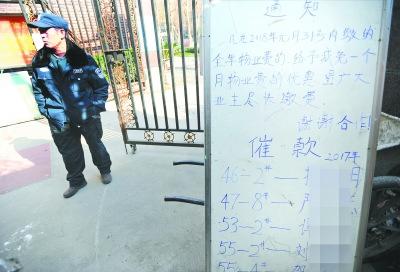 通知
凡在2018年元月31号内缴纳
全年物业费的，给予减免一个
月物业费的优惠，望广大
业主尽快缴费。
谢谢合作
催款 2017年
46—2#—
47—8#—
53—2#—
55—2#—刘
55—4#—贺